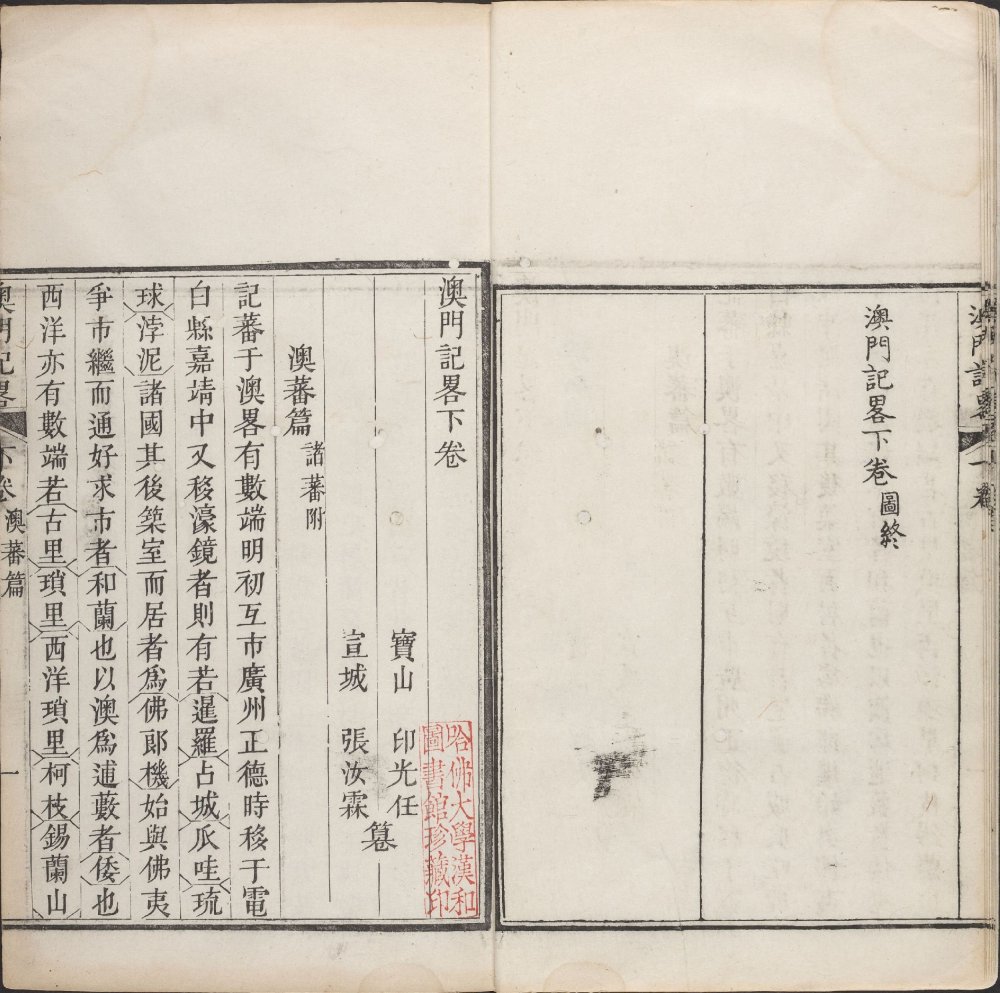 澳門記畧下卷圖終
澳門記畧下卷
寶山 印光任
宣城 張汝霖
篹
澳蕃篇諸蕃附
記蕃于澳畧有數端明初互市廣州正德時移于電
白縣嘉靖中又移濠鏡者則有若暹羅占城爪哇琉
球浡泥諸國其後築室而居者爲佛郎機始與佛夷
爭市繼而通好求市者和蘭也以澳爲逋藪者倭也
西洋亦有數端若古里瑣里西洋瑣里柯枝錫蘭山
澳門記畧 下卷 澳蕃篇 一
哈佛大學漢和
圖書館珍藏印